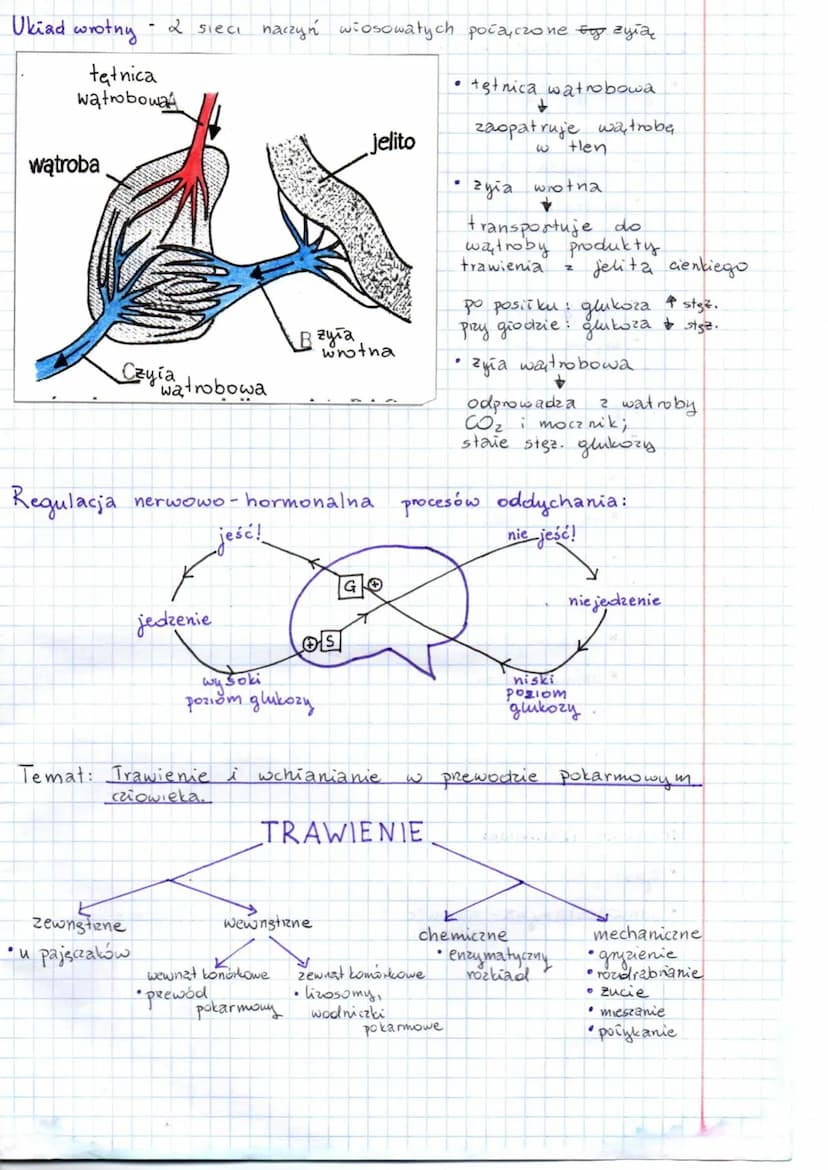 Układ wrotny - 2 sieci naczyń włosowatych połączone żyłą
tętnica
wątrobowa A
wątroba
jelito
B żyła
wrotna
C żyła
wątrobowa
• tętnica wątrobowa
↓
zaopatruje wątrobę
w tlen
• żyła wrotna
↓
transportuje do
wątroby produkty
trawienia z jelita cienkiego
po posiłku: glukoza ↑ stęż.
przy głodzie: glukoza ↓ stęż.
• żyła wątrobowa
↓
odprowadza z watroby
CO₂ i mocznik;
stałe stęż. glukozy
Regulacja nerwowo-hormonalna procesów oddychania:
jeść!
nie jeść!
G +
jedzenie
niejedzenie
+ S
wysoki
poziom glukozy
niski
poziom
glukozy
Temat: Trawienie i wchłanianie w przewodzie pokarmowym
człowieka.
TRAWIENIE
zewnętrzne
• u pajęczaków
wewnętrzne
wewnątrz komórkowe
• przewód
pokarmowy
zewnątrz komórkowe
• lizosomy,
wodniczki
pokarmowe
chemiczne
• enzymatyczny
rozkład
mechaniczne
• gryzienie
• rozdrabnianie
• żucie
• mieszanie
• połykanie